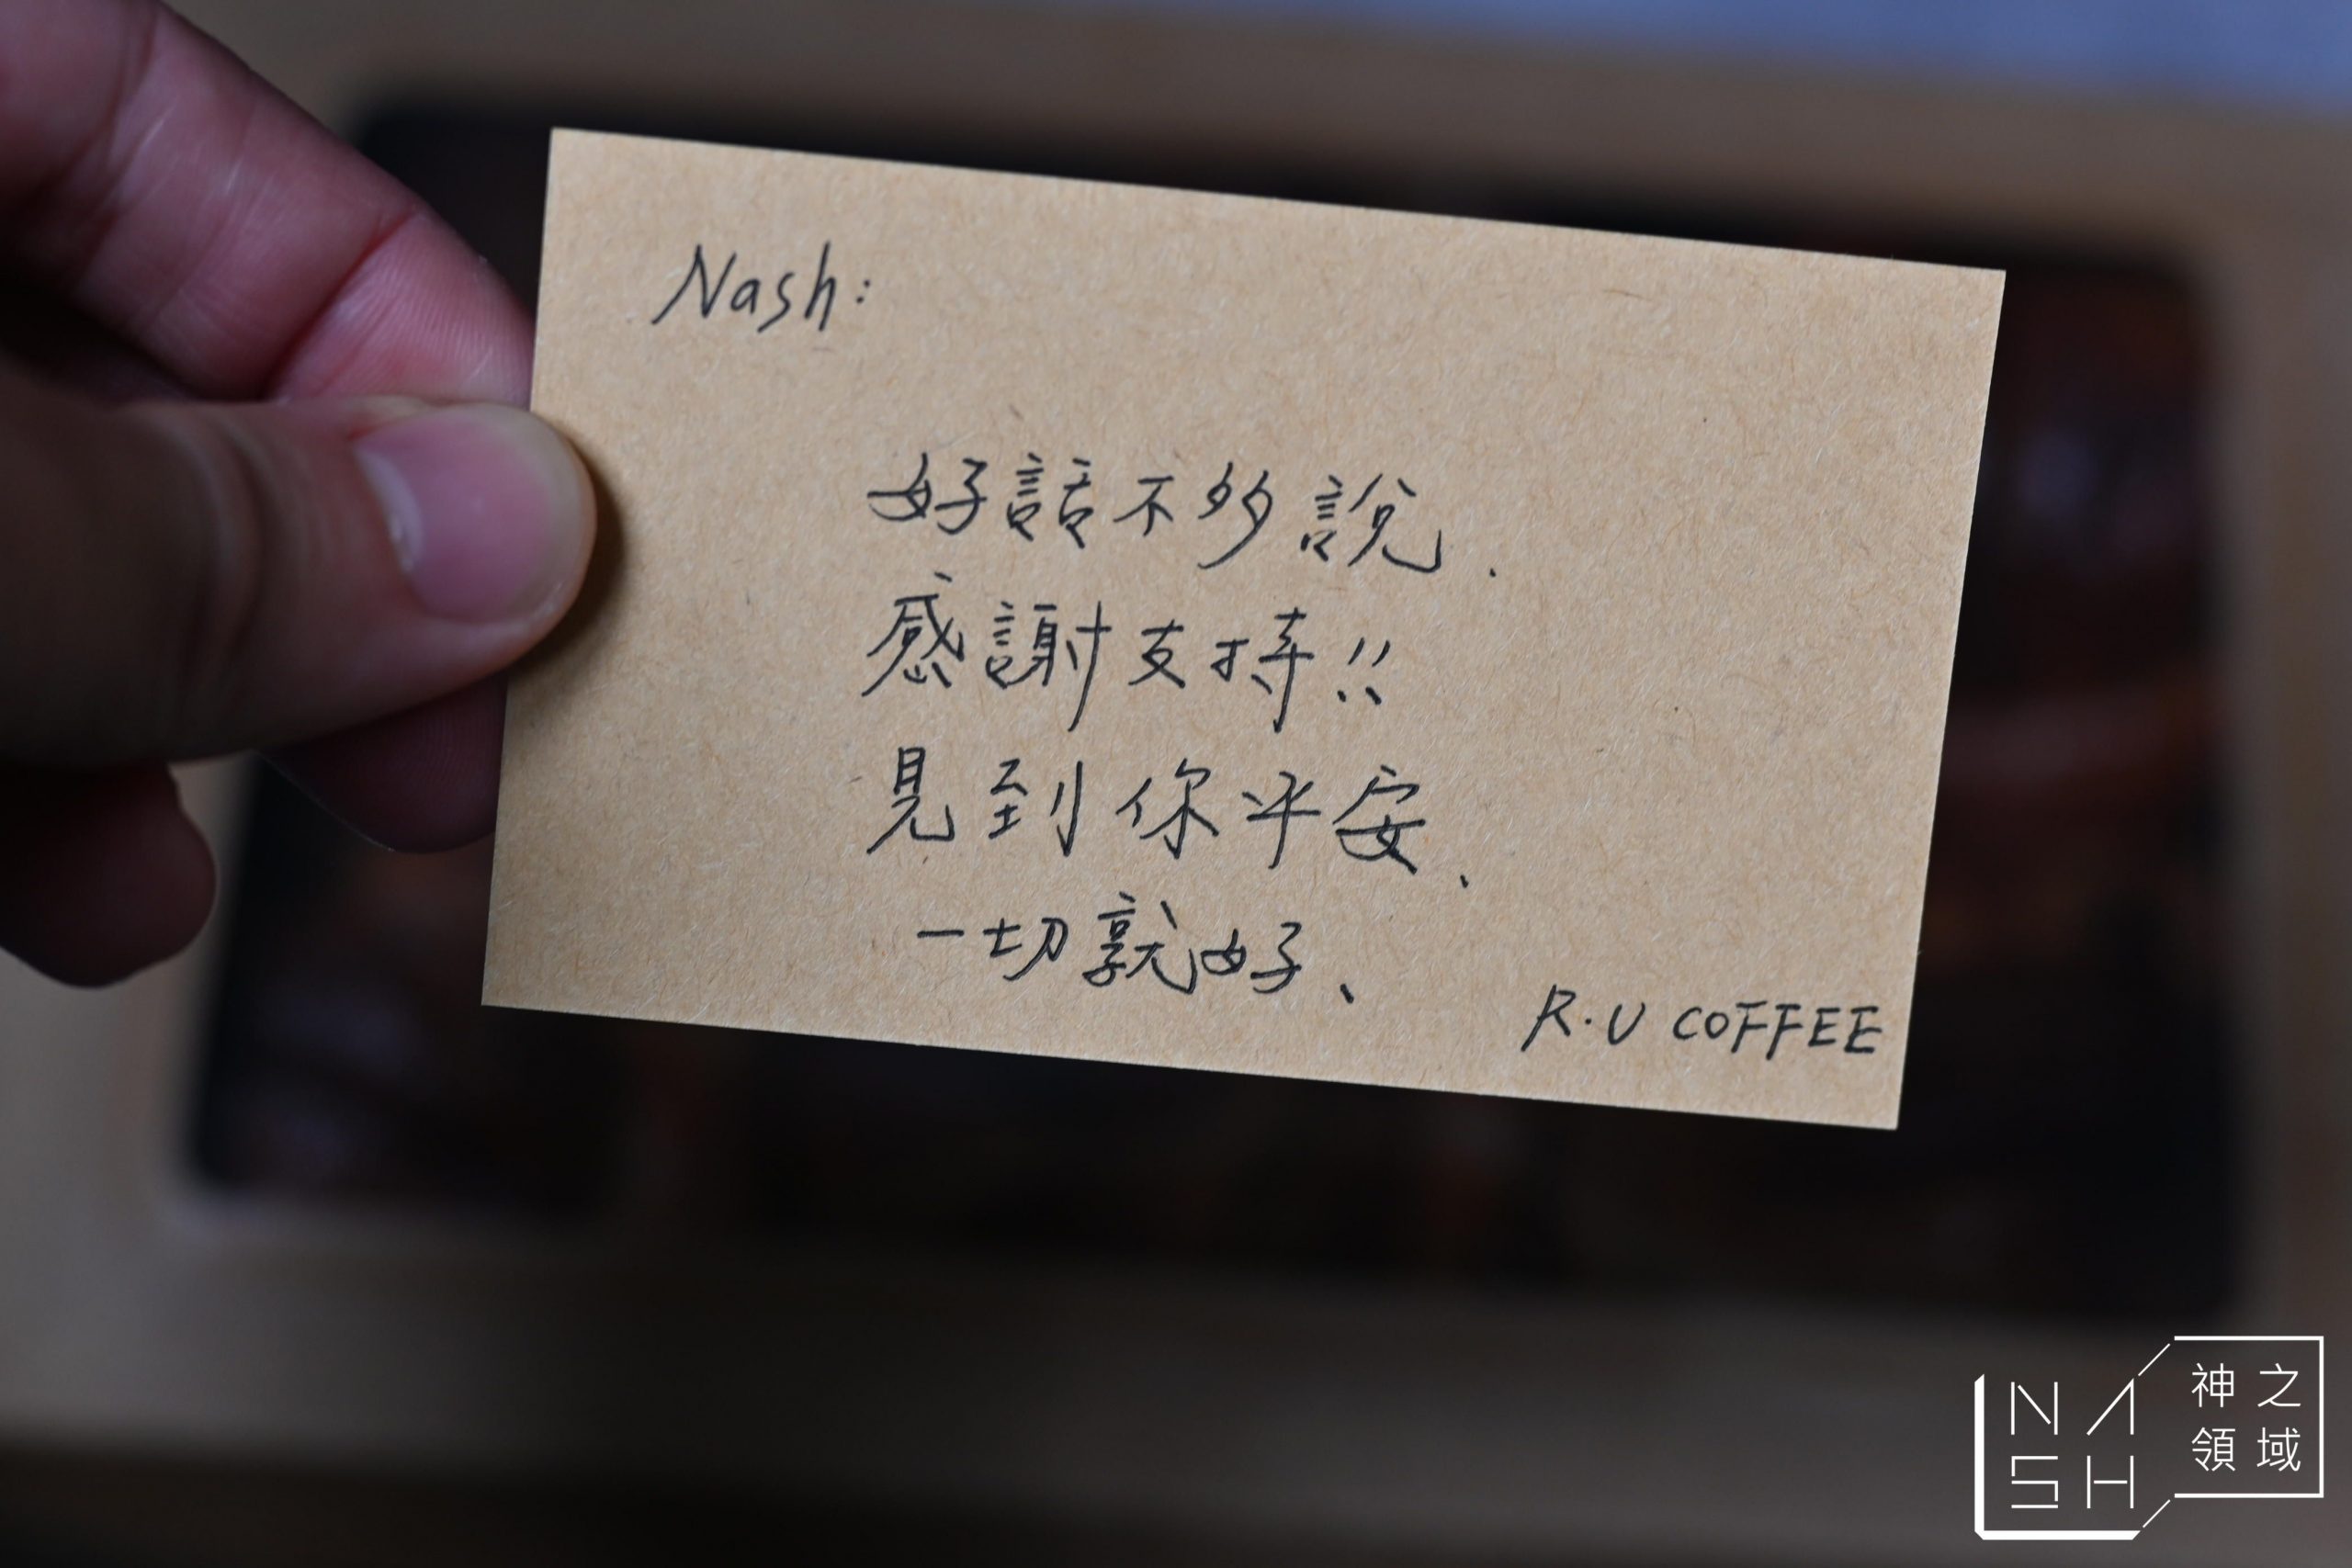 Nash:
好話不多說.
感謝支持!!
見到你平安、
一切就好、
R.U COFFEE
NASH
神之領域